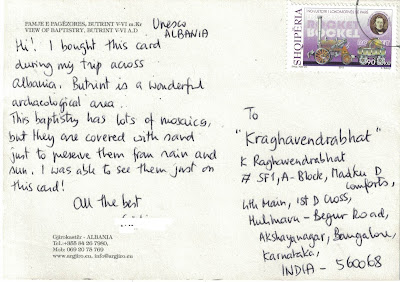 PAMJE E PAGËZORES, BUTRINT V-VI m.Kr
VIEW OF BAPTISTRY, BUTRINT V-VI A.D
Unesco
ALBANIA
Hi! I bought this card
during my trip across
Albania. Butrint is a wonderful
archaeological area.
This baptistry has lots of mosaics,
but they are covered with sand
just to preserve them from rain and
sun. I was able to see them just on
this card!
All the best
Gjirokastër - ALBANIA
Tel.+355 84 26 7980,
Mob: 069 20 78 769
www.argjiro.eu, info@argjiro.eu
SHQIPËRIA
90 Lekë
To
"Kraghavendrabhat"
K Raghavendrabhat
7 SF1, A-Block, Madhu D
Comforts,
4th Main, 1st D Cross,
Hulimavu - Begur Road,
Akshayanagar, Bangalore,
Karnataka,
INDIA - 560068